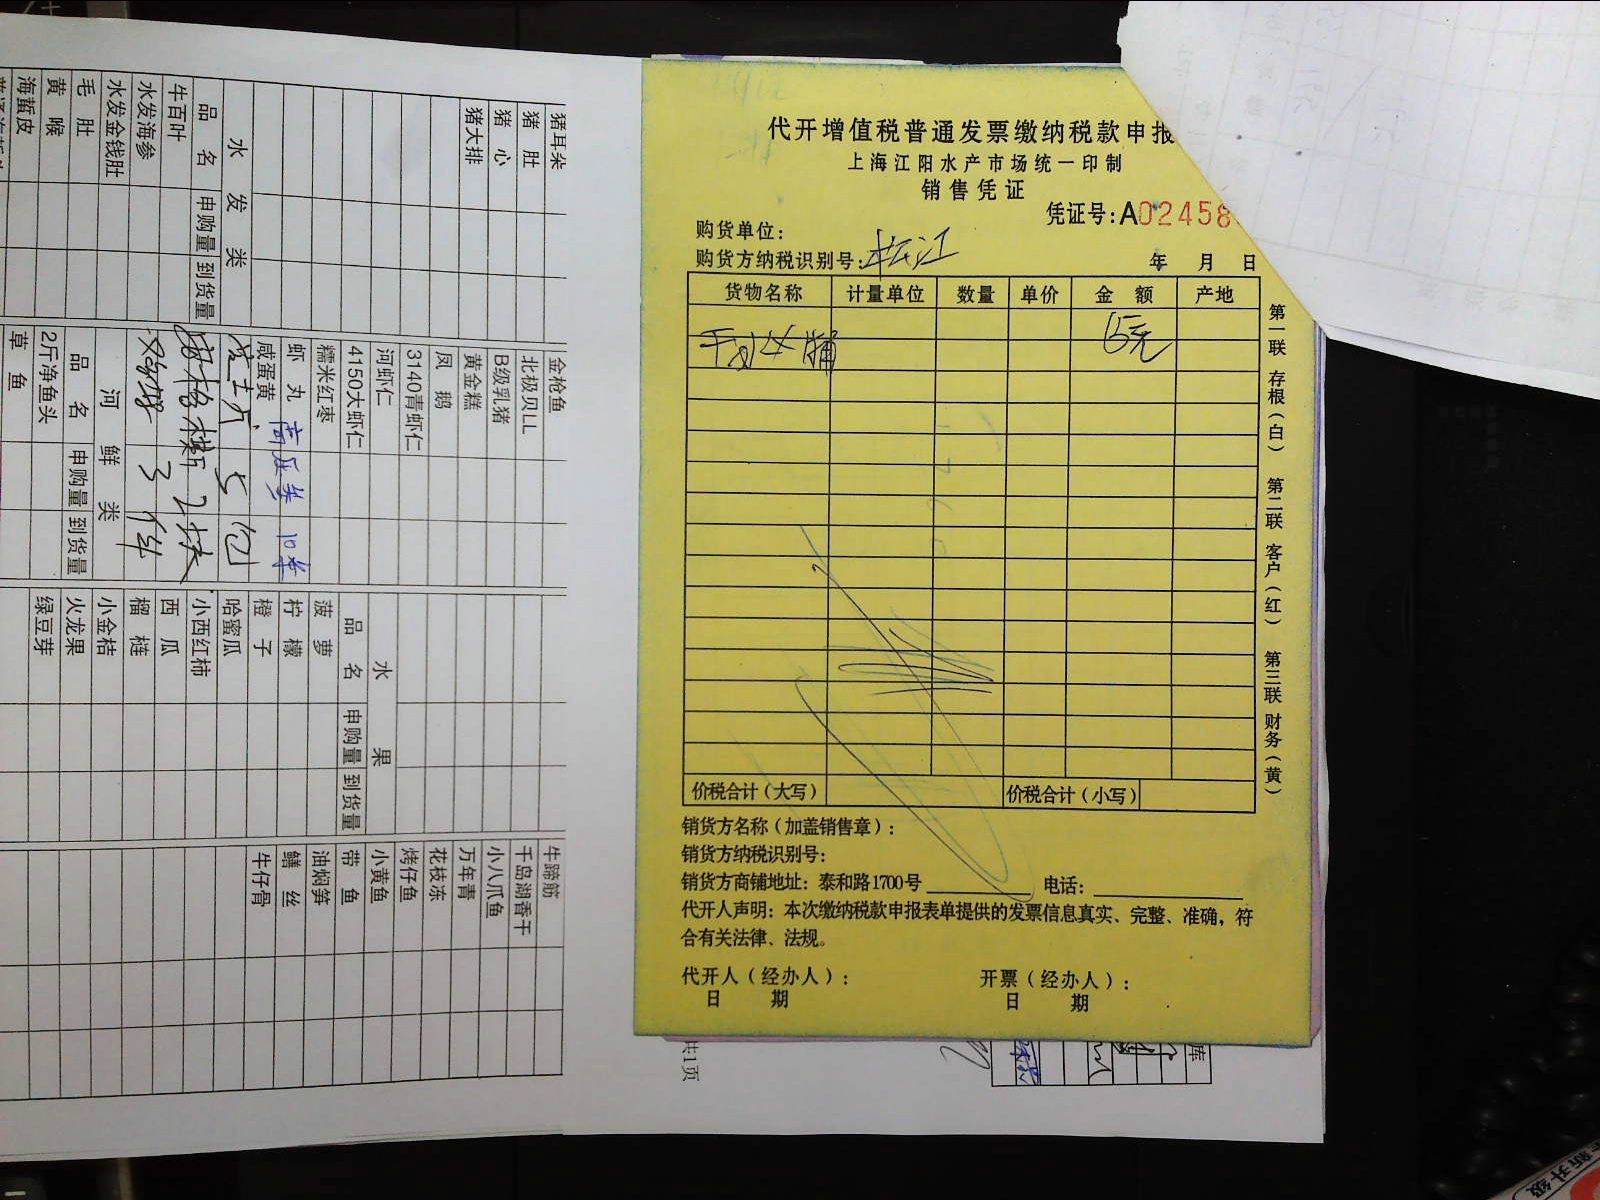 代开增值税普通发票缴纳税款申报
上海江阳水产市场统一印制
销售凭证
凭证号:A02458
购货单位:
购货方纳税识别号:松江
年 月 日
货物名称 计量单位 数量 单价 金额 产地
15元
价税合计(大写) 价税合计(小写)
销货方名称(加盖销售章):
销货方纳税识别号:
销货方商铺地址:泰和路1700号 电话:
代开人声明:本次缴纳税款申报表单提供的发票信息真实、完整、准确,符
合有关法律、法规。
代开人(经办人): 开票(经办人):
日 期 日 期
第一联 存根(白) 第二联 客户(红) 第三联 财务(黄)
共1页
库
猪耳朵
猪肚
猪心
猪大排
水发类
品名 申购量 到货量
牛百叶
水发海参
水发金钱肚
毛肚
黄喉
海蜇皮
金枪鱼
北极贝LL
B级乳猪
黄金糕
凤鹅
3140青虾仁
河虾仁
4150大虾仁
糯米红枣
虾丸
咸蛋黄
5包
2块
3件
河鲜类
品名 申购量 到货量
2斤净鱼头
草鱼
水果
品名 申购量 到货量
菠萝
柠檬
橙子
哈蜜瓜
小西红柿
西瓜
榴梿
小金桔
火龙果
绿豆芽
牛蹄筋
千岛湖香干
小八爪鱼
万年青
花枝冻
烤仔鱼
小黄鱼
带鱼
油焖笋
鳝丝
牛仔骨
新升级